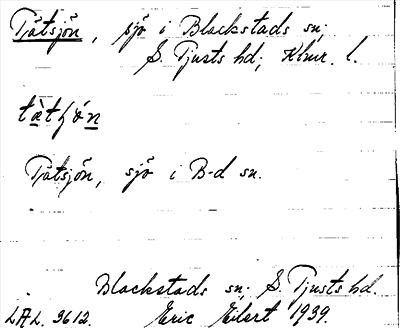 Tåtsjön, sjö i Blackstads sn;
S. Tjusts hd; Klmr. l.
tàtʃǿn
Tåtsjön, sjö i B-d sn.
Blackstads sn. S. Tjusts hd.
LAL. 3612. Eric Eilert 1939.